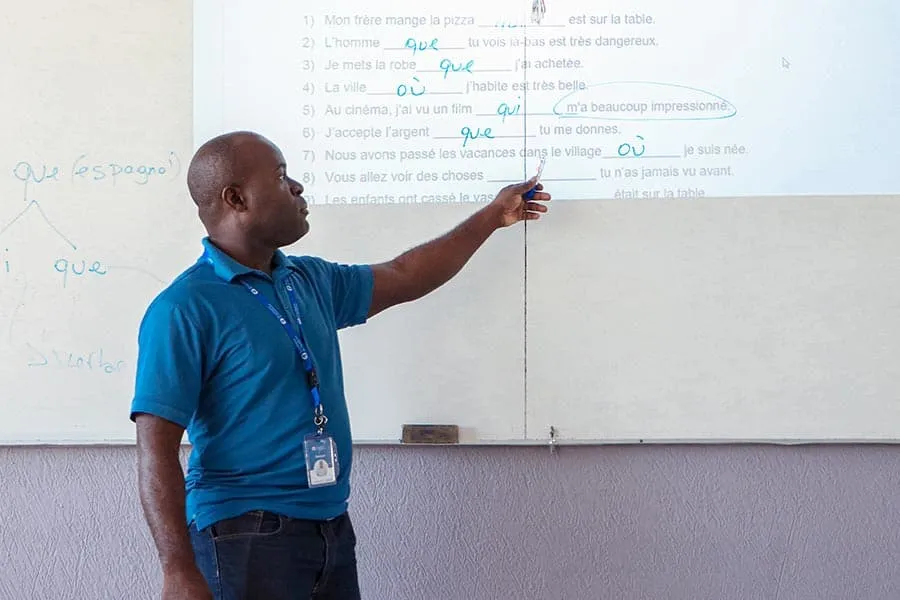 1) Mon frère mange la pizza qui est sur la table.
2) L'homme que tu vois là-bas est très dangereux.
3) Je mets la robe que j'ai achetée.
4) La ville où j'habite est très belle.
5) Au cinéma, j'ai vu un film qui m'a beaucoup impressionné.
6) J'accepte l'argent que tu me donnes.
7) Nous avons passé les vacances dans le village où je suis née.
8) Vous allez voir des choses tu n'as jamais vu avant.
Les enfants ont cassé le était sur la table.
que (espagnol)
que